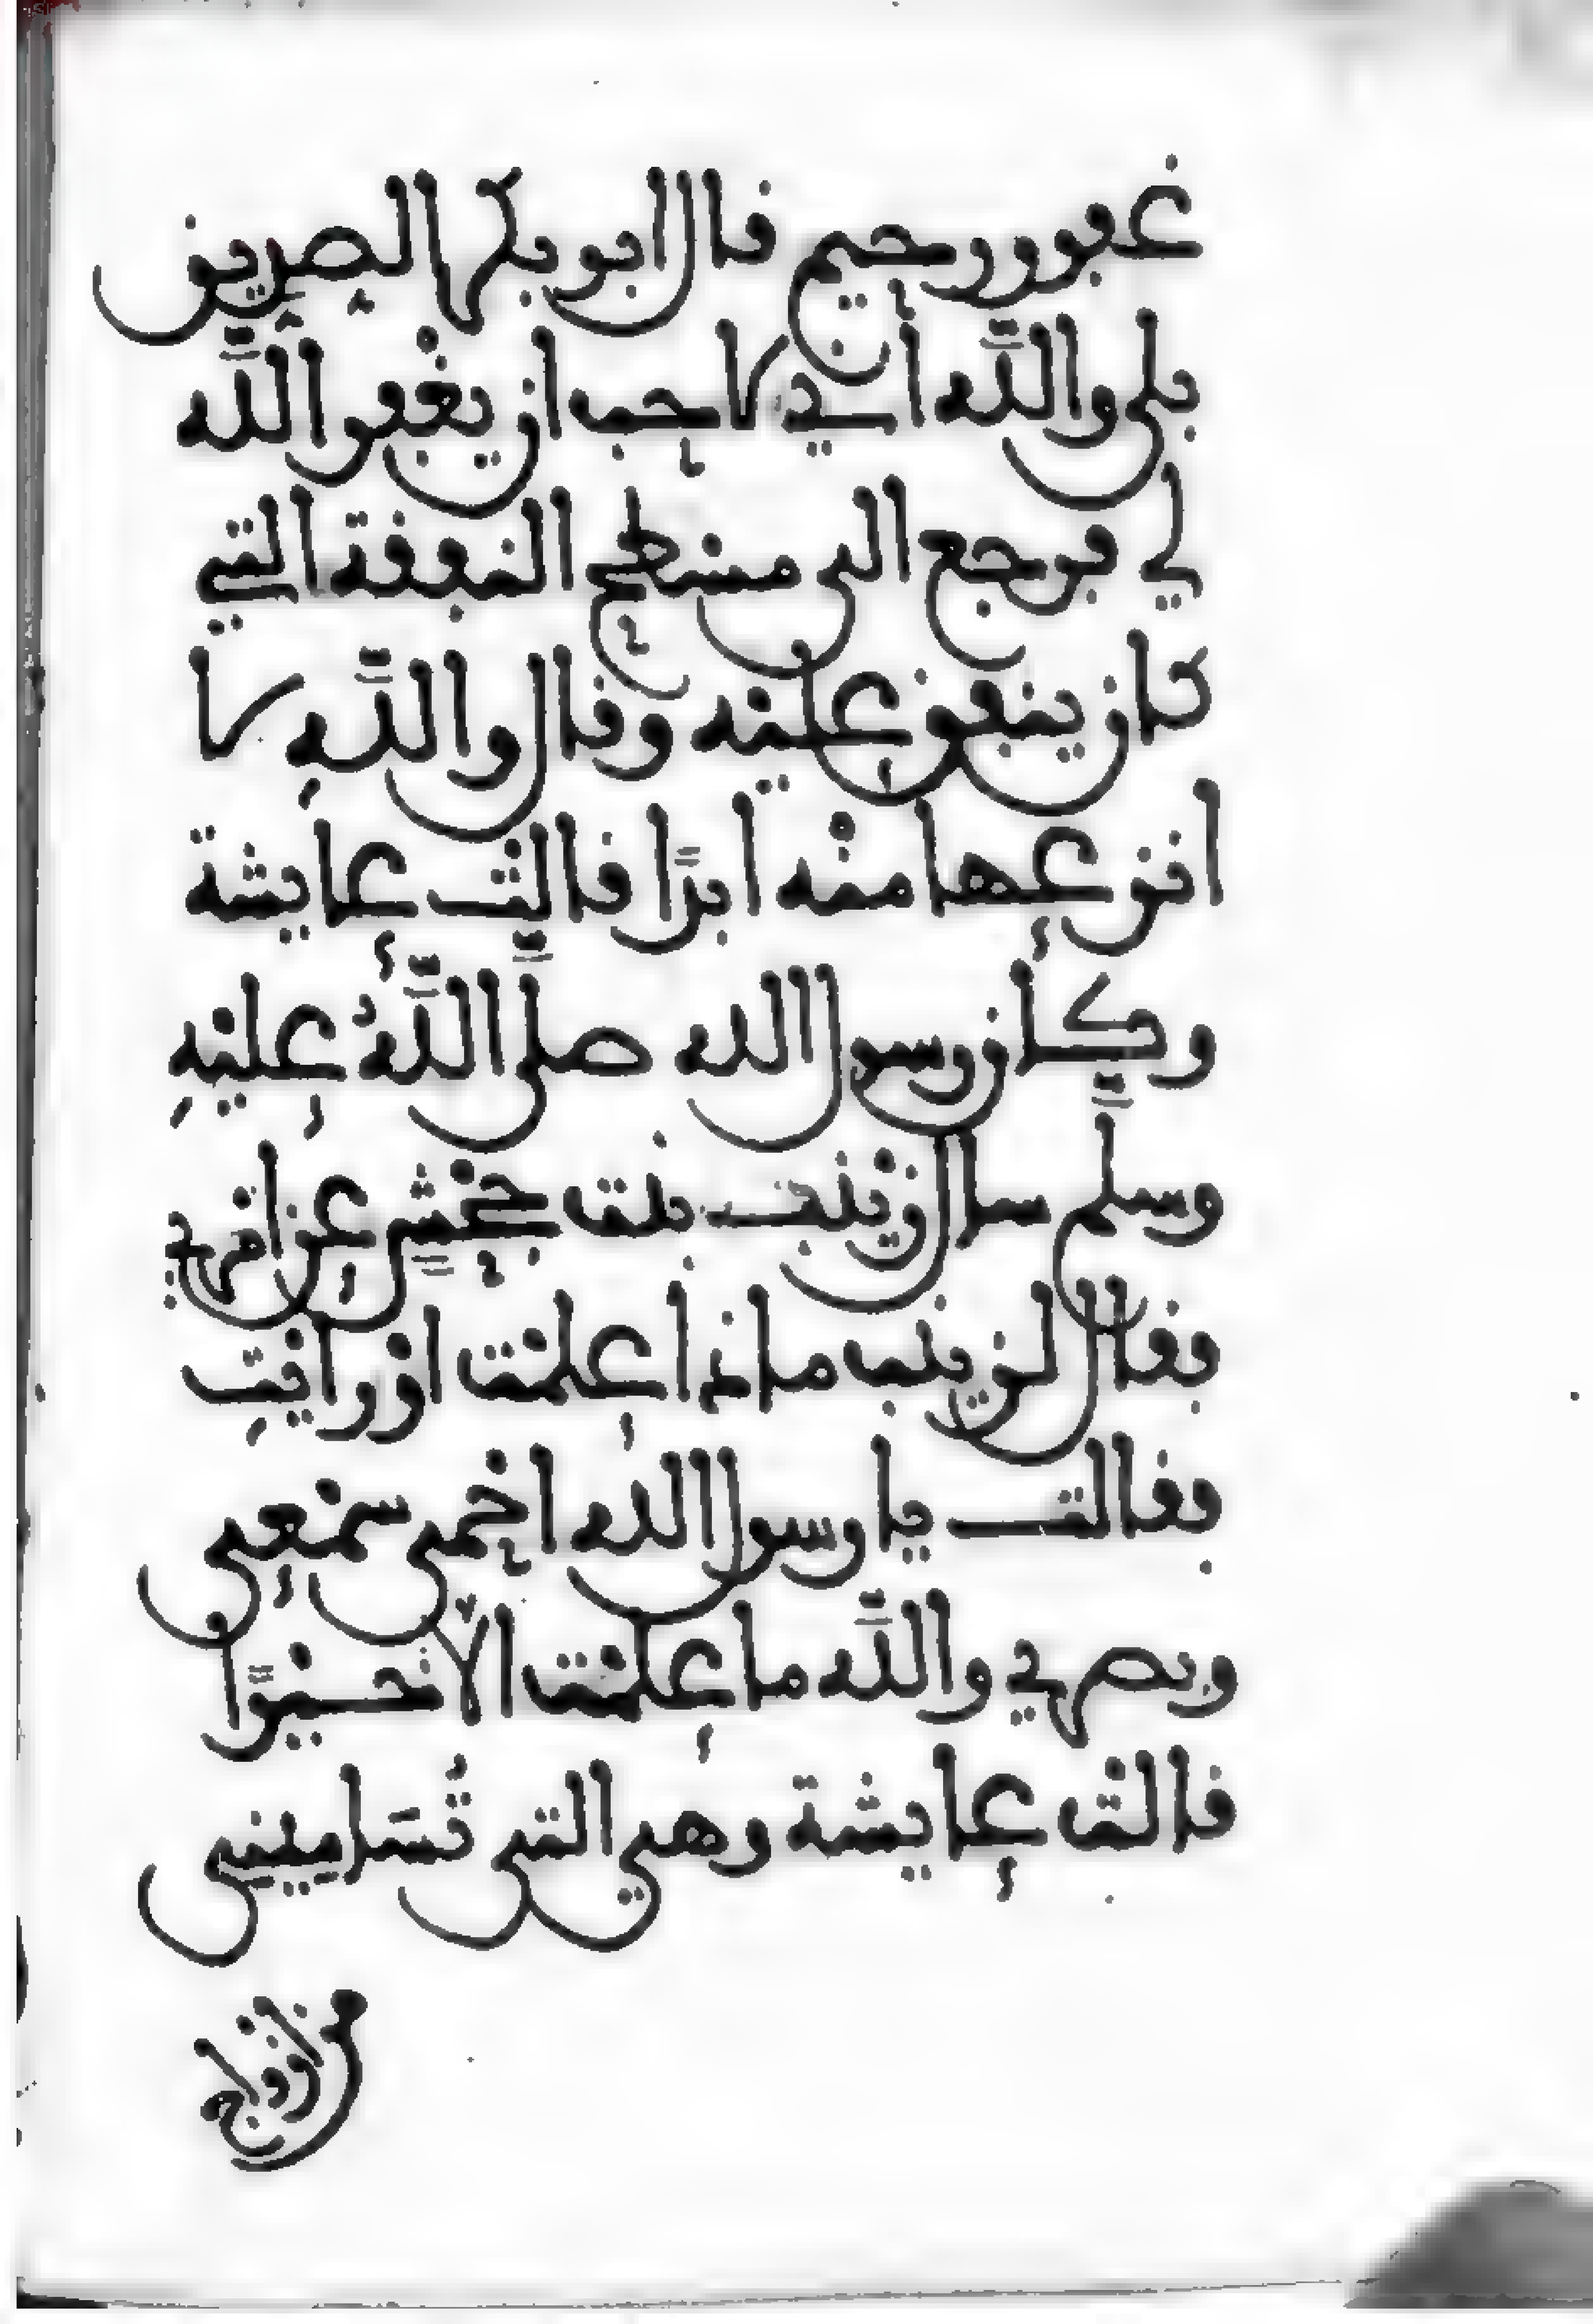 غفور رحيم قال ابو بكر الصديق
بلى والله أني لاحب ان يغفر الله
لي فرجع الى مسطح النفقة التي
كان ينفق عليه وقال والله لا
انزعها منه ابدًا قالت عايشة
وكان رسول الله صلى اللهُ عليهِ
وسلم سال زينب بنت جحشٍ عن امري
فقال لزينب ماذا علمت او رايت
فقالت يا رسول الله احمى سمعى
وبصري والله ما علمت الا خيرًا
قالت عايشة وهي التى تُسَامينى
من ازواج